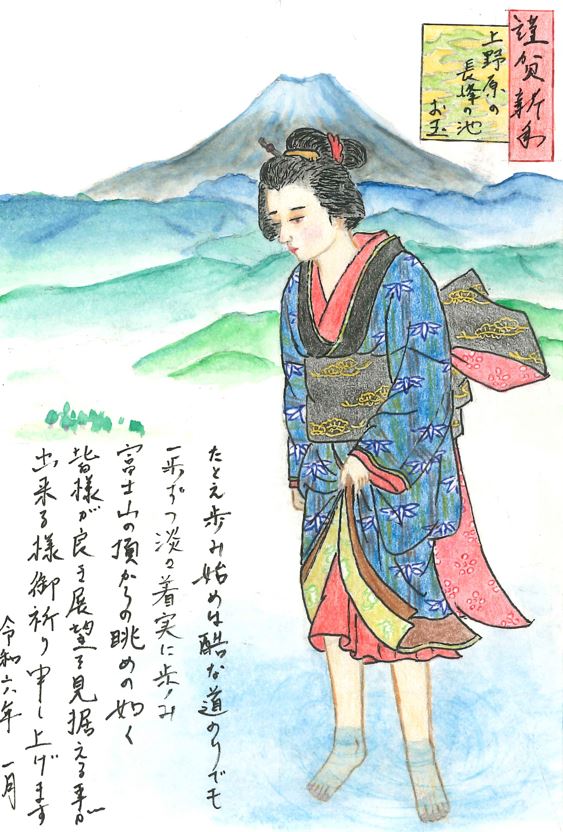 謹賀新年
上野原の
長峰の池
お玉
たとえ歩み始めは酷な道のりでも
一歩ずつ淡々着実に歩み
富士山の頂からの眺めの如く
皆様が良き展望を見据える事が
出来る様御祈り申し上げます
令和六年 一月